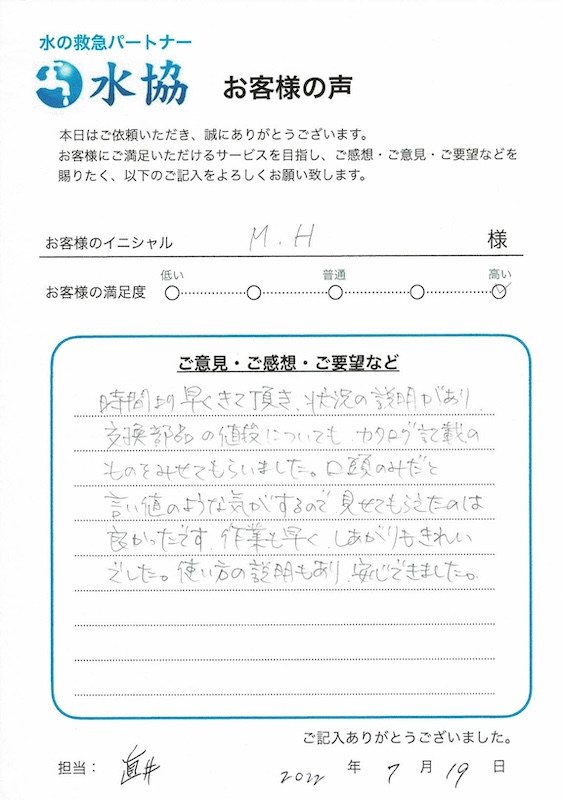 水の救急パートナー
水協 お客様の声
本日はご依頼いただき、誠にありがとうございます。
お客様にご満足いただけるサービスを目指し、ご感想・ご意見・ご要望などを
賜りたく、以下のご記入をよろしくお願い致します。
お客様のイニシャル M.H 様
低い 普通 高い
お客様の満足度
ご意見・ご感想・ご要望など
時間より早くきて頂き、状況の説明があり、
交換部品の値段についても、カタログ記載の
ものをみせてもらいました。口頭のみだと
言い値のような気がするので、見せてもらえたのは
良かったです。作業も早く、しあがりもきれい
でした。使い方の説明もあり、安心できました。
ご記入ありがとうございました。
担当： 2022 年 7 月 19 日